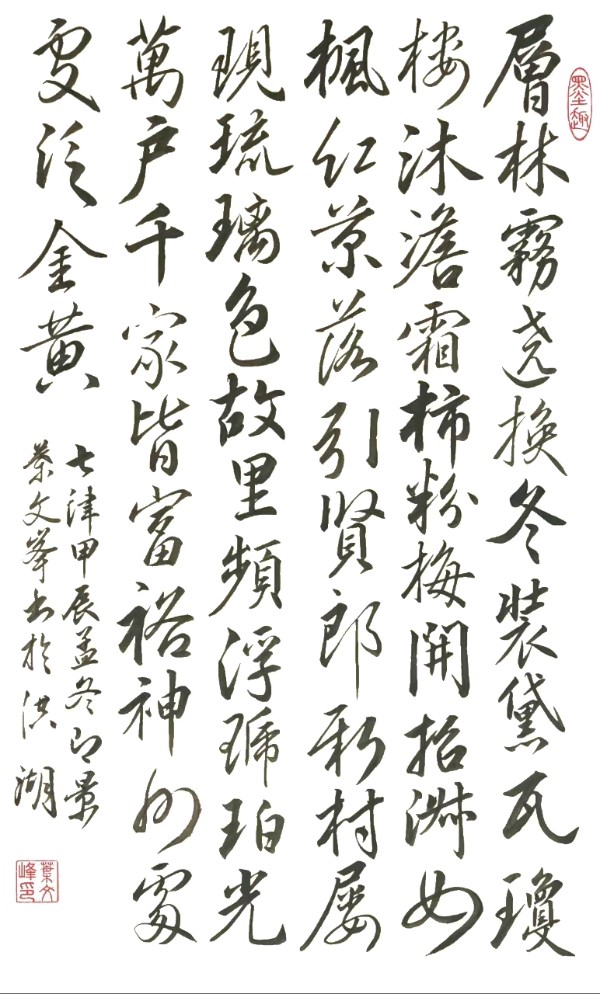 墨趣
層林霧遶換冬裝黛瓦瓊
樓沐澹霜柿粉梅開招淑女
楓紅葉落引賢郎新村屢
現琉璃色故里頻浮琥珀光
萬戶千家皆富裕神州處
處泛金黃
七律甲辰孟冬即景
葉文峯書於洪湖
葉文峰印